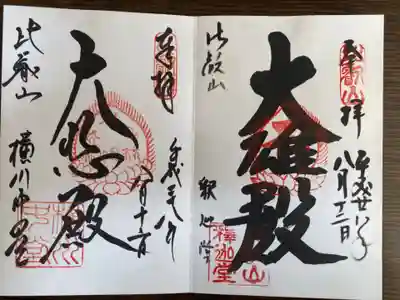 奉拝
平成廿八年
八月十二日
大雄殿
比叡山
釈迦堂
釋迦堂
奉拝
平成二十八年
八月十二日
大悲殿
比叡山
横川中堂